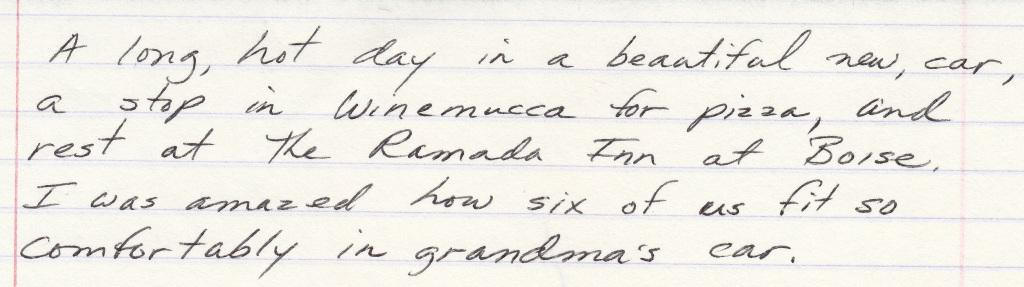 A long, hot day in a beautiful new, car,
a stop in Winemucca for pizza, and
rest at the Ramada Inn at Boise.
I was amazed how six of us fit so
comfortably in grandma's car.